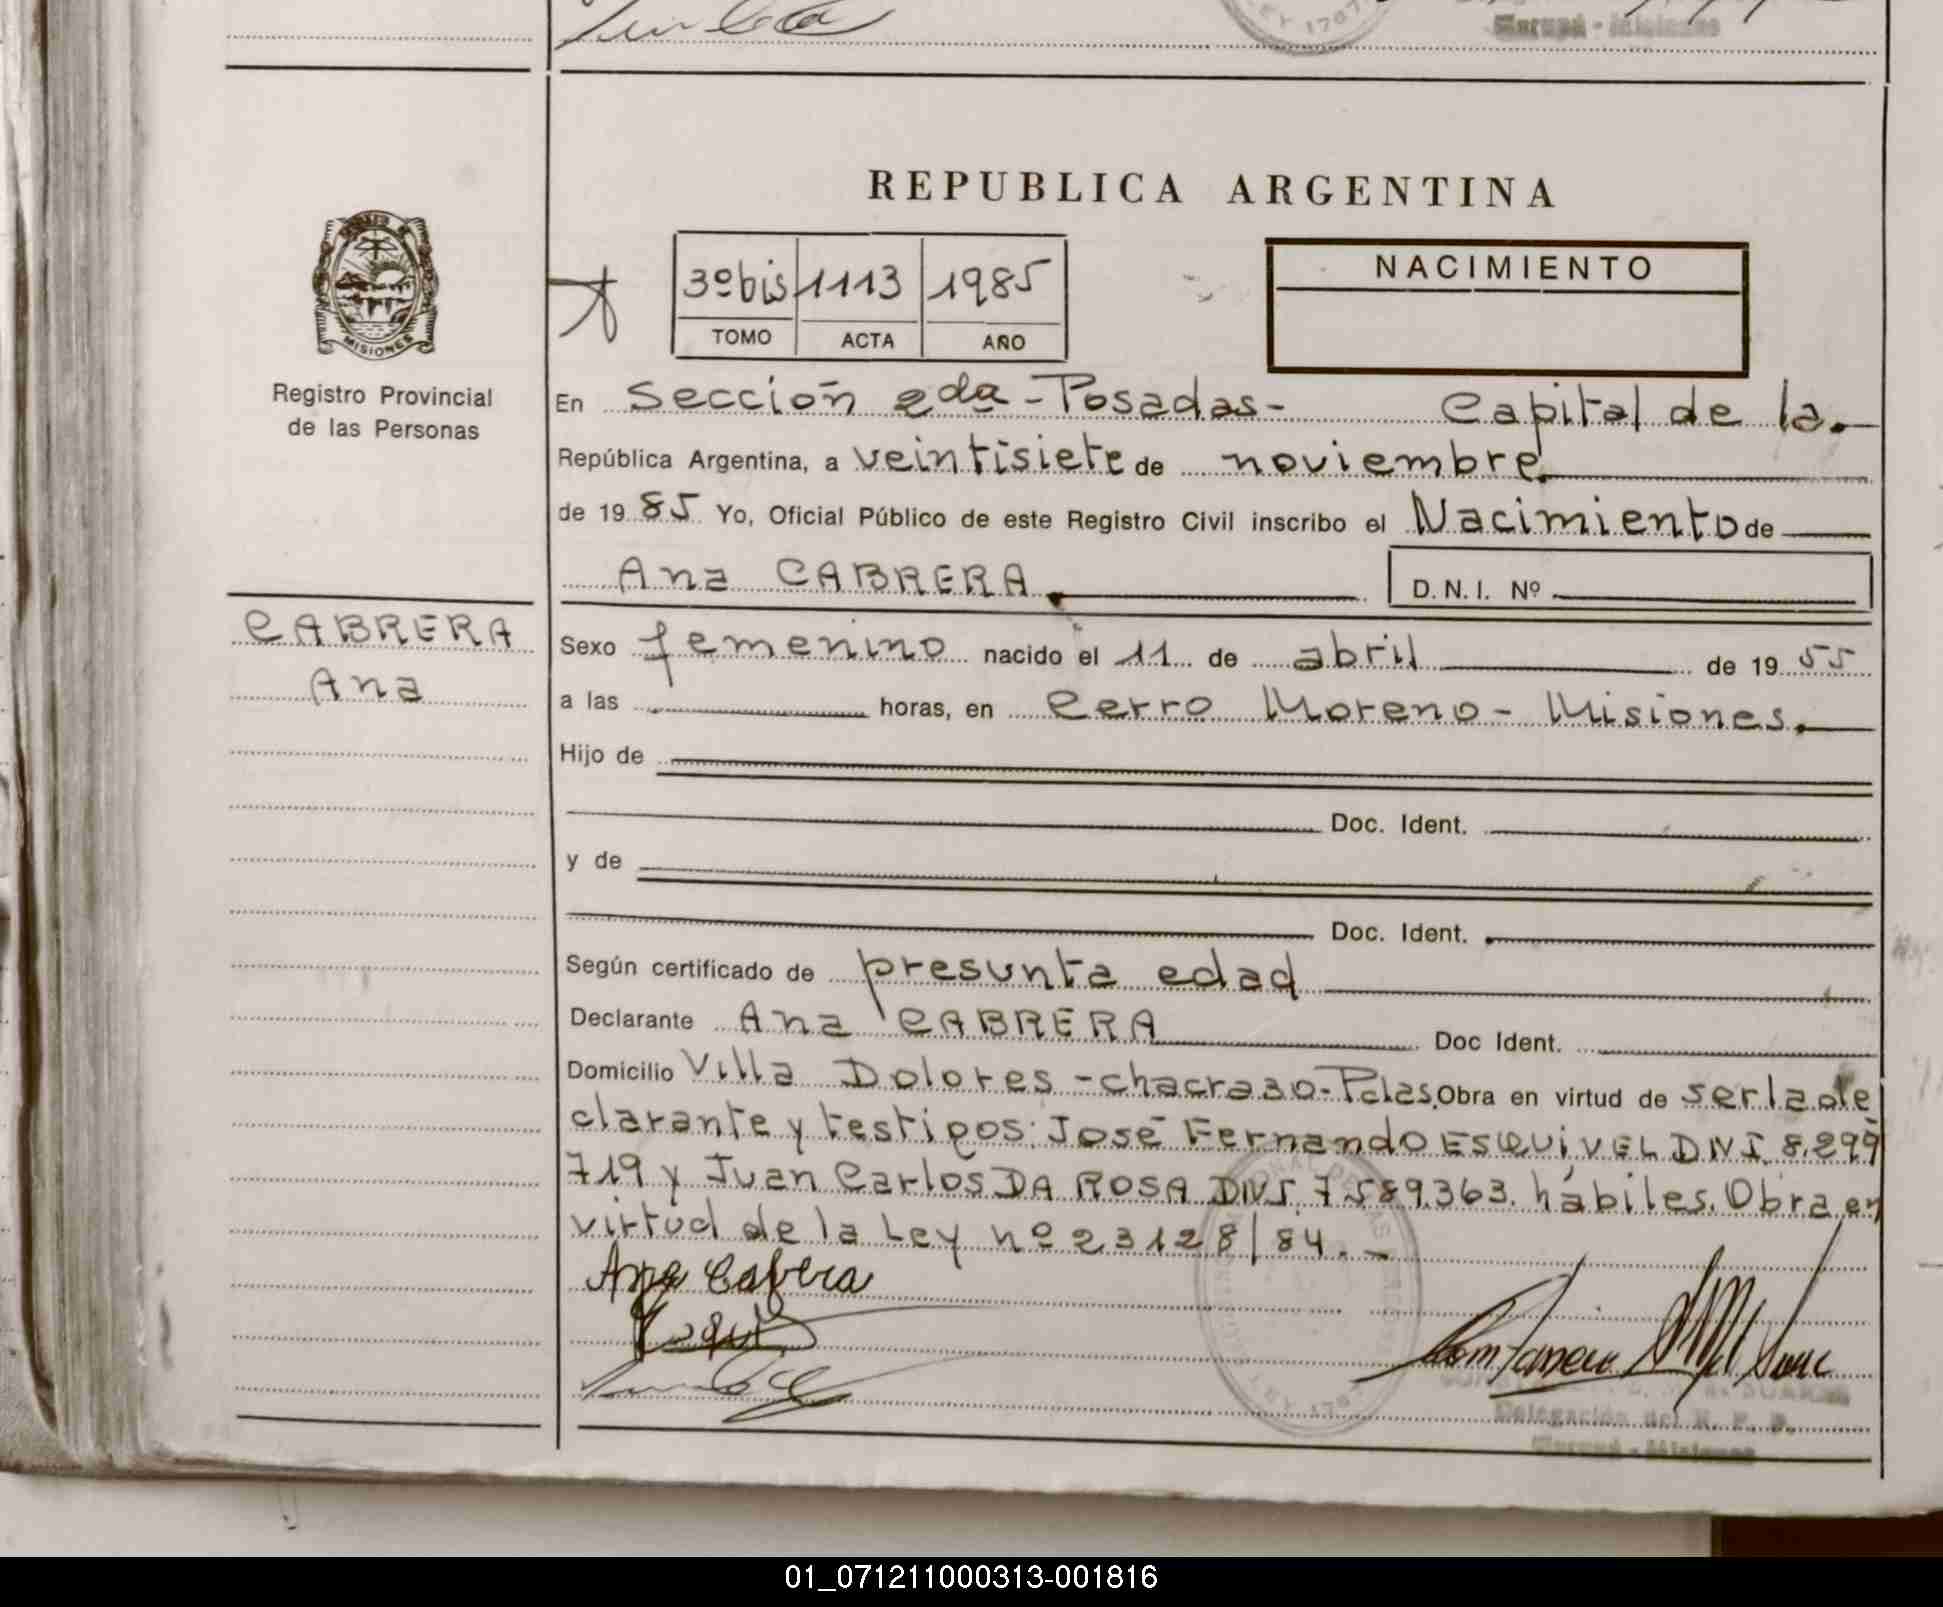 REPUBLICA ARGENTINA
3º bis 1113 1985
TOMO ACTA AÑO
NACIMIENTO
MISIONES
Registro Provincial
de las Personas
En Sección 2da - Posadas - Capital de la
República Argentina, a veintisiete de noviembre
de 1985 Yo, Oficial Público de este Registro Civil inscribo el Nacimiento de
Ana CABRERA D.N.I. Nº
CABRERA
Ana
Sexo femenino nacido el 11 de abril de 1955
a las horas, en Cerro Moreno - Misiones.
Hijo de
Doc. Ident.
y de
Doc. Ident.
Según certificado de presunta edad
Declarante Ana CABRERA Doc Ident.
Domicilio Villa Dolores - chacra 30 - Pdas. Obra en virtud de ser la de
clarante y testigos: José Fernando ESQUIVEL DNI 8.299
719 y Juan Carlos DA ROSA DNI. 7589.363. hábiles. Obra en
virtud de la Ley nº 23128/84. -
Ana Cabrera
Delegación del R. P. P.
01_071211000313-001816